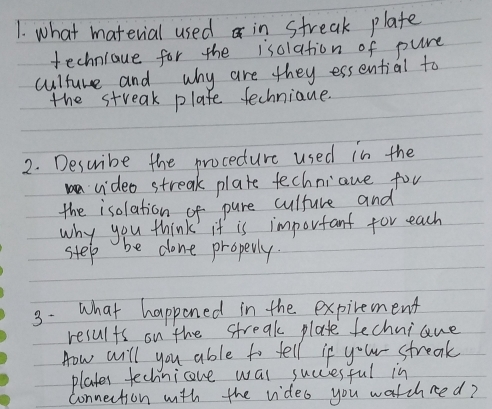 1. What material used in streak plate
technique for the isolation of pure
culture and why are they essential to
the streak plate technique.
2. Describe the procedure used in the
video streak plate technique for
the isolation of pure culture and
why you think it is important for each
step be done properly.
3- What happened in the expirement
results on the streak plate technique
How will you able to tell if your streak
plates technique was succesful in
connection with the video you watched?